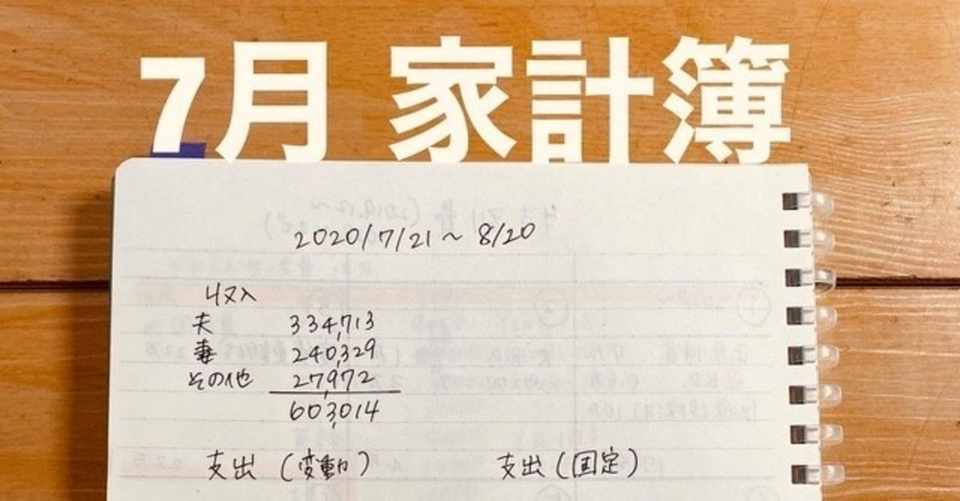 7月 家計簿
2020/7/21～8/20
収入
夫 334,713
妻 240,329
その他 27,972
603,014
支出(変動) 支出(固定)